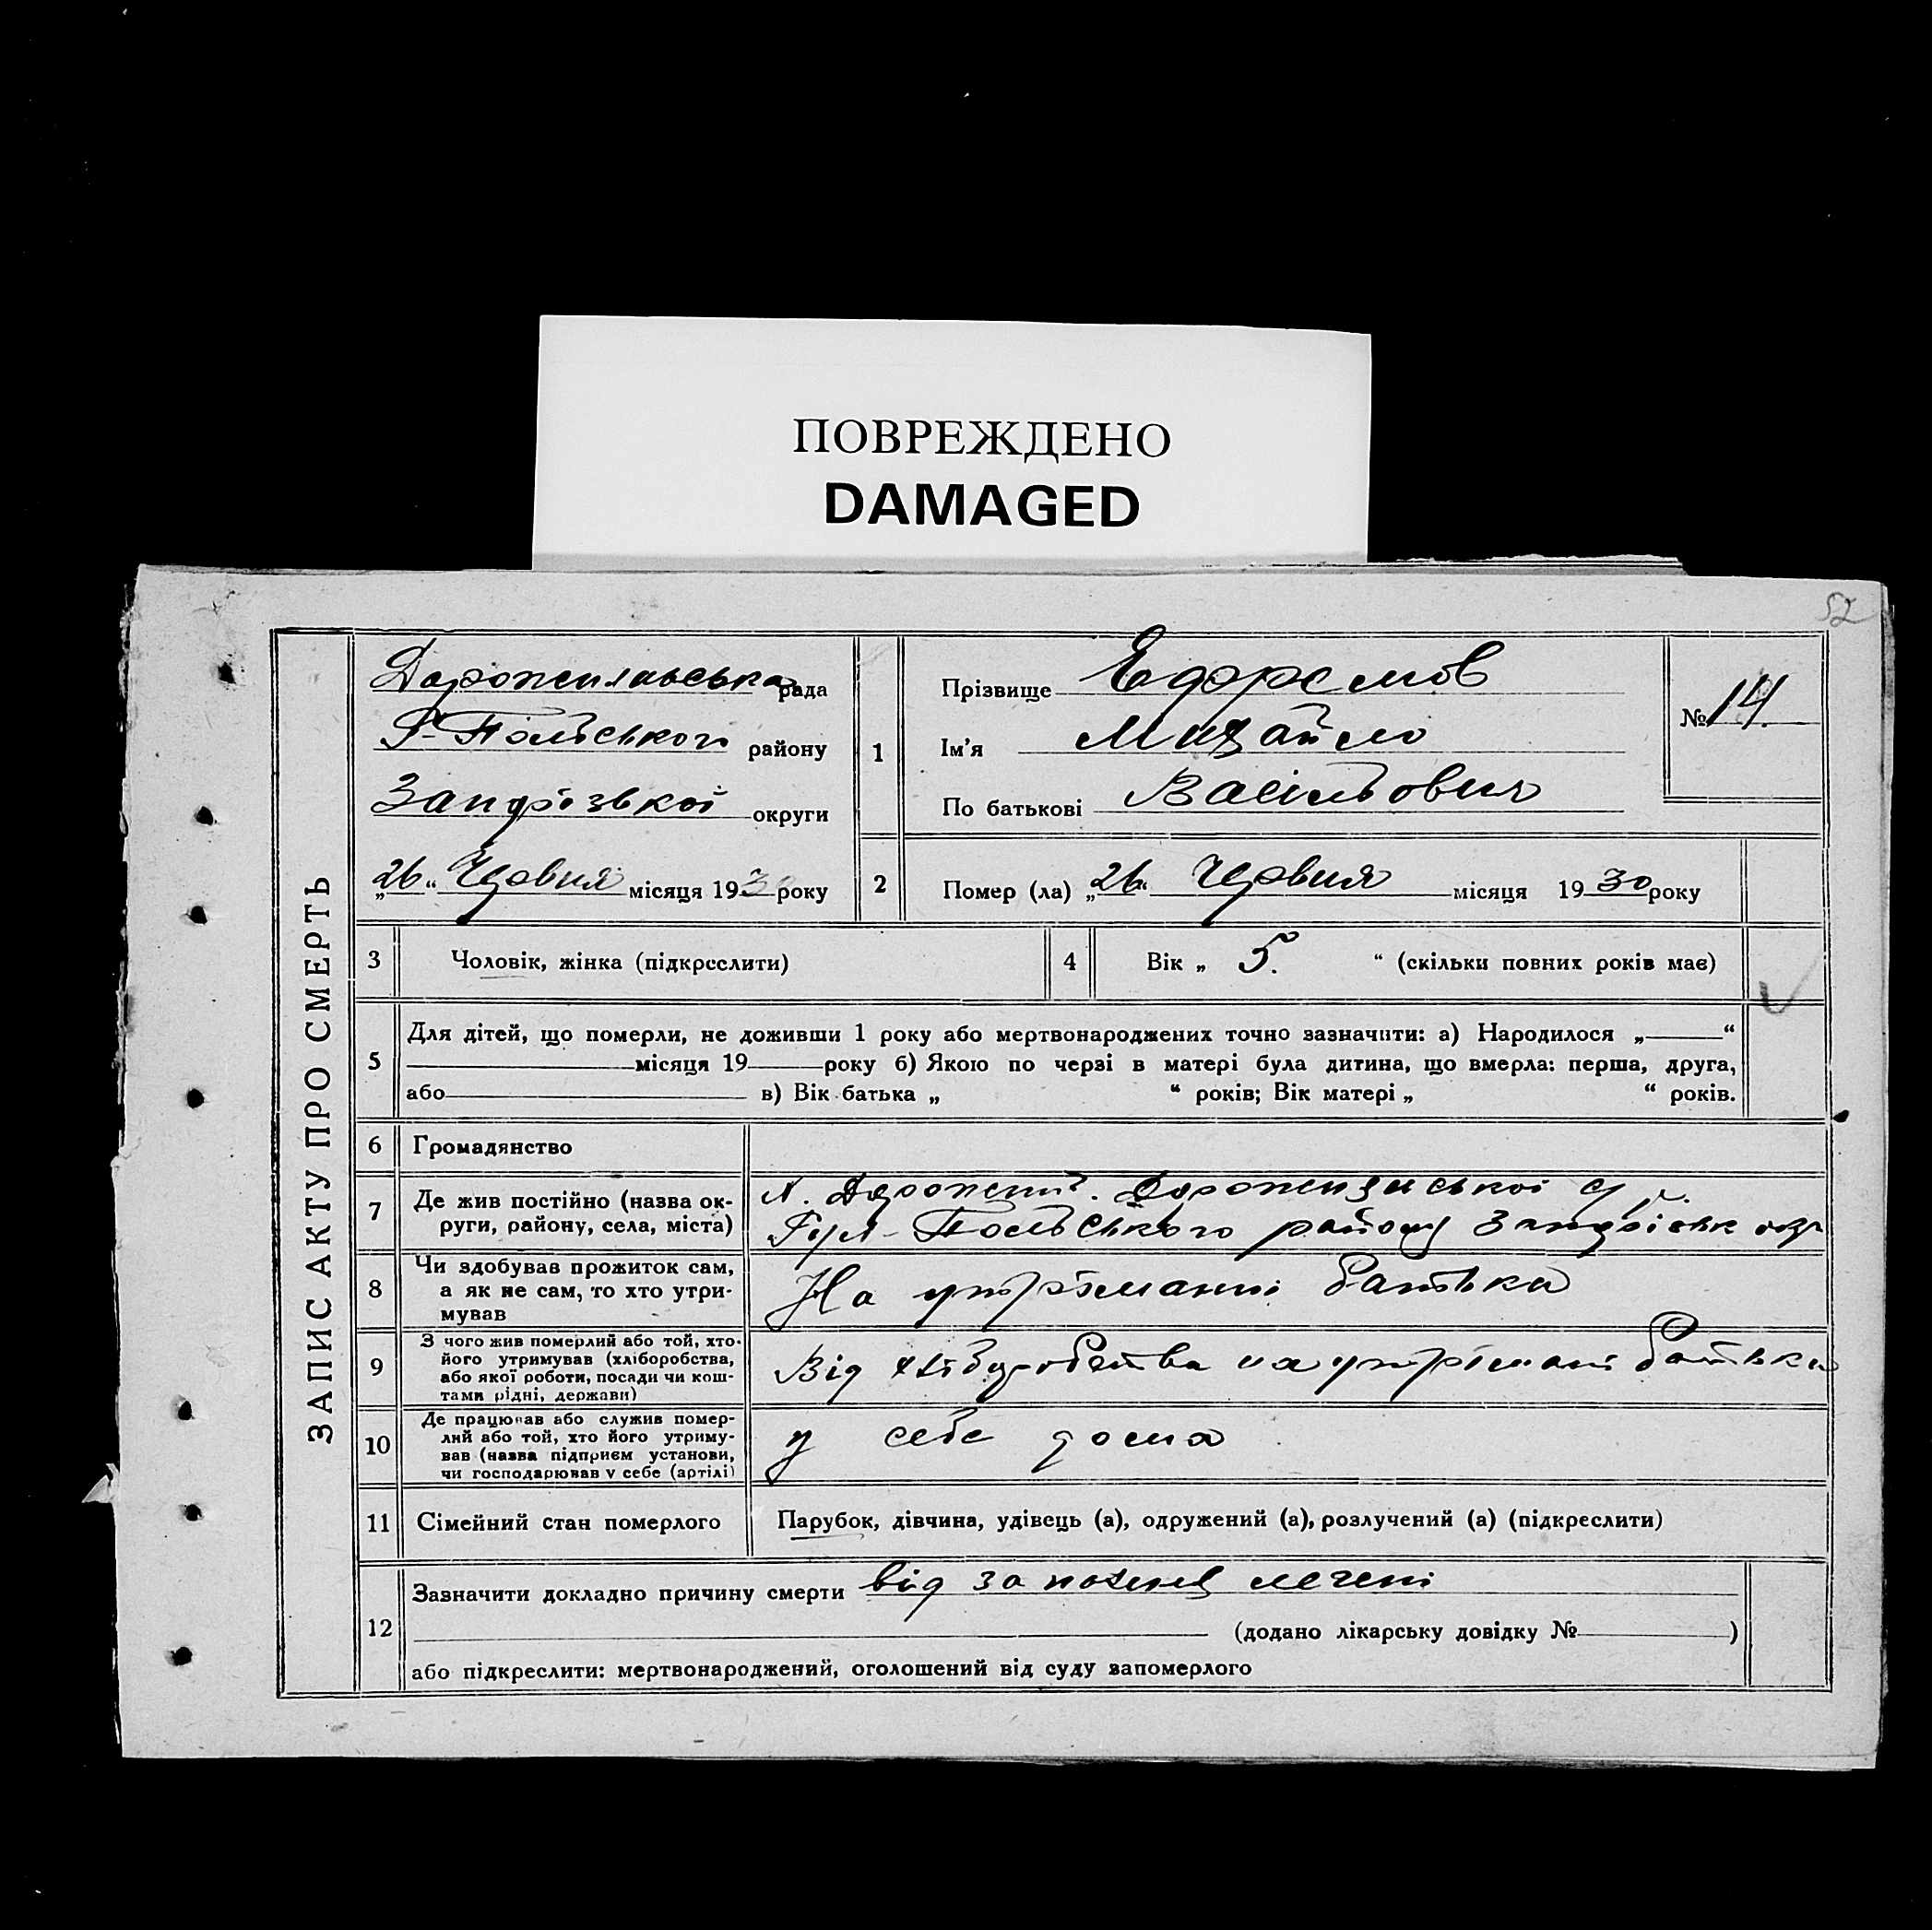 ПОВРЕЖДЕНО
DAMAGED
52
ЗАПИС АКТУ ПРО СМЕРТЬ
рада
району
округи
„26“ Червня місяця 1930 року
1
Прізвище Ефремов
Ім'я Михайло
По батькові Васільович
№ 14.
2
Помер (ла) „26“ Червня місяця 1930 року
3
Чоловік, жінка (підкреслити)
4
Вік „ 5. “ (скільки повних років має)
5
Для дітей, що померли, не доживши 1 року або мертвонароджених точно зазначити: а) Народилося „ “
місяця 19 року б) Якою по черзі в матері була дитина, що вмерла: перша, друга,
або в) Вік батька „ “ років; Вік матері „ “ років.
6
Громадянство
7
Де жив постійно (назва ок-
руги, району, села, міста)
Гул-Польського району
8
Чи здобував прожиток сам,
а як не сам, то хто утри-
мував
На утріманні батька
9
З чого жив померлий або той, хто
його утримував (хліборобства,
або якої роботи, посади чи кош-
тами рідні, держави)
Від хліборобства на утрімані батька
10
Де працював або служив помер-
лий або той, хто його утриму-
вав (назва підприєм установи,
чи господарював у себе (артілі)
у себе дома
11
Сімейний стан померлого
Парубок, дівчина, удівець (а), одружений (а), розлучений (а) (підкреслити)
12
Зазначити докладно причину смерти від
(додано лікарську довідку № )
або підкреслити: мертвонароджений, оголошений від суду запомерлого